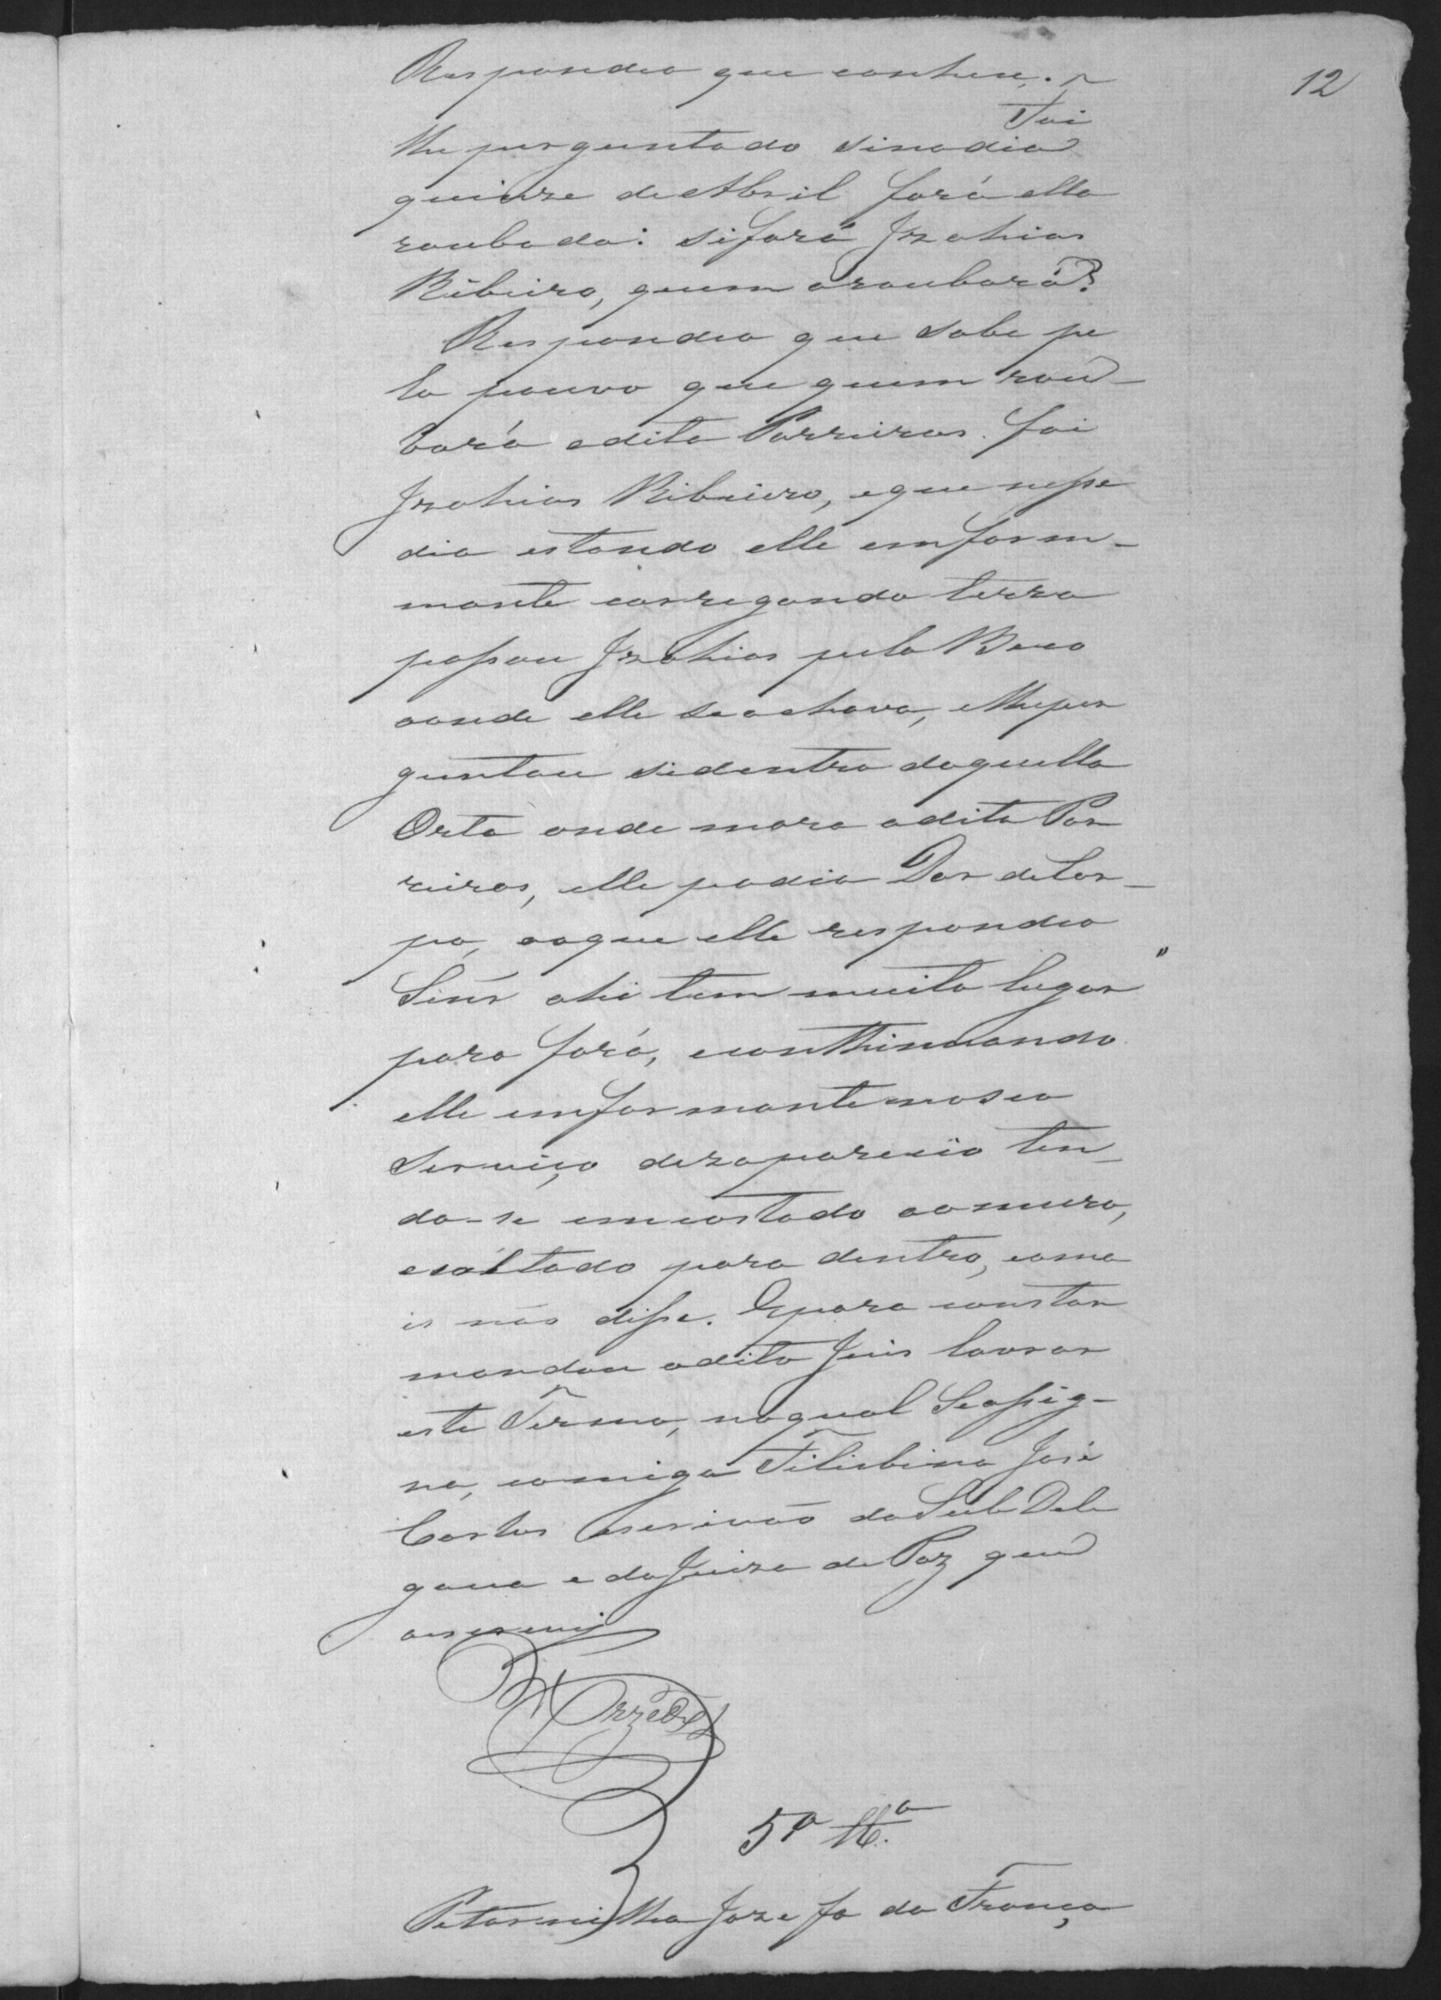 12
Respondeo que conhece.
Foi
lhe perguntado sinodia
quinze de Abril forá ella
roubada: siforá Izahias
Ribeiro, quem aroubará?
Respondeo que sabe pe
lo pouvo que quem rou-
bará adita Parreiras. foi
Izahias Ribeiro, eque nesse
dia estando elle emform-
mante carregando terra
passou Izahias pelo Beco
aonde elle seachava, elheper
guntou sidentro daquella
Orta onde mora adita Par
reiras, elle podia Dar de Cor-
po, aoque elle respondeo
Sinr ahi tem muito lugar "
para forá, econthinuando
elle emformante noseo
Serviço dezapareceo ten-
do-se emcostado aomuro,
esaltado para dentro, como
is nos disse. Epara constar
mandou odito Juis lavrar
este Termo, noqual Seassig-
na, comigo Filisbino José
Cortes escrivão da Sub Dele
gacia e do Juizo de Paz que
oescrevij
5ª Ttª
Petornilha Jozefa da França